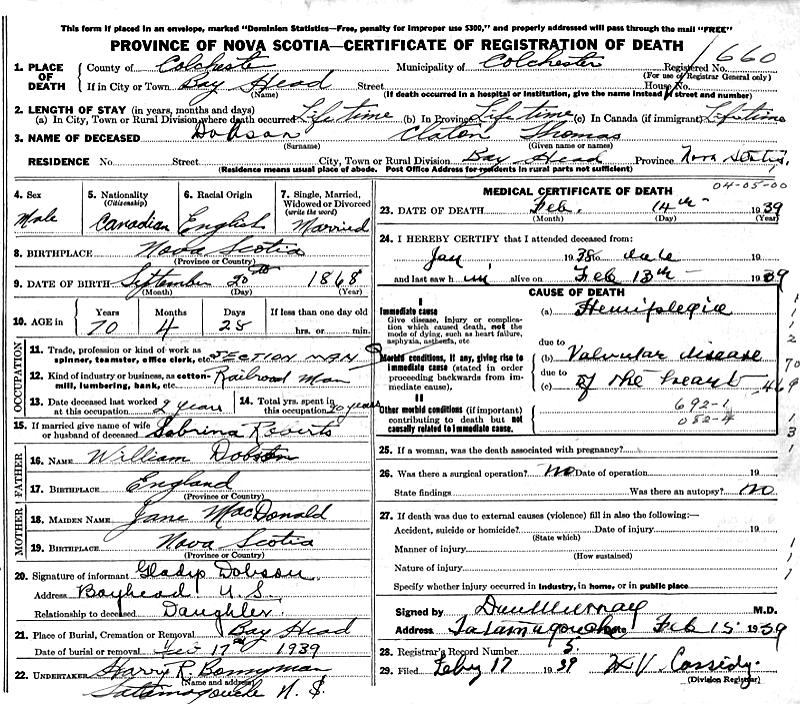 This form if placed in an envelope, marked "Dominion Statistics—Free, penalty for improper use $300," and properly addressed will pass through the mail "FREE"
PROVINCE OF NOVA SCOTIA—CERTIFICATE OF REGISTRATION OF DEATH
1. PLACE OF DEATH County of Colchester Municipality of Colchester Registered No. 660
(For use of Registrar General only)
If in City or Town Bay Head Street House No.
(Name) (If death occurred in a hospital or institution, give the name instead of street and number)
2. LENGTH OF STAY (in years, months and days)
(a) In City, Town or Rural Division where death occurred Life time (b) In Province Life time (c) In Canada (if immigrant) Lifetime
3. NAME OF DECEASED Dobson Claton Thomas
(Surname) (Given name or names)
RESIDENCE No. Street City, Town or Rural Division Bay Head Province Nova Scotia
(Residence means usual place of abode. Post Office Address for residents in rural parts not sufficient)
4. Sex Male
5. Nationality (Citizenship) Canadian
6. Racial Origin English
7. Single, Married, Widowed or Divorced (write the word) Married
8. BIRTHPLACE Nova Scotia
(Province or Country)
9. DATE OF BIRTH September 20th 1868
(Month) (Day) (Year)
10. AGE in Years Months Days If less than one day old
70 4 28 hrs. or min.
OCCUPATION
11. Trade, profession or kind of work as spinner, teamster, office clerk, etc. SECTION MAN
12. Kind of industry or business, as cotton-mill, lumbering, bank, etc. Railroad Man
13. Date deceased last worked at this occupation 2 years
14. Total yrs. spent in this occupation 20 years
15. If married give name of wife or husband of deceased Sabrina Roberts
FATHER
16. NAME William Dobson
17. BIRTHPLACE England
(Province or Country)
MOTHER
18. MAIDEN NAME Jane MacDonald
19. BIRTHPLACE Nova Scotia
(Province or Country)
20. Signature of informant Gladys Dobson
Address Bayhead
Relationship to deceased Daughter
21. Place of Burial, Cremation or Removal Bay Head
Date of burial or removal Feb 17th 1939
22. UNDERTAKER Harry R Bonnyman
(Name and address)
Tatamagouche N. S.
MEDICAL CERTIFICATE OF DEATH
04-05-00
23. DATE OF DEATH Feb. 14th 1939
(Month) (Day) (Year)
24. I HEREBY CERTIFY that I attended deceased from:
Jan 1938 to date
and last saw him alive on Feb 13th 1939
CAUSE OF DEATH
I
Immediate cause
Give disease, injury or complication which caused death, not the mode of dying, such as heart failure, asphyxia, asthenia, etc.
(a) Hemiplegia
due to
Morbid conditions, if any, giving rise to immediate cause (stated in order proceeding backwards from immediate cause).
(b) Valvular disease
due to
(c) of the heart 469
II
Other morbid conditions (if important) contributing to death but not causally related to immediate cause.
692-1
082-4
25. If a woman, was the death associated with pregnancy?
26. Was there a surgical operation? No Date of operation 19
State findings Was there an autopsy? No
27. If death was due to external causes (violence) fill in also the following:—
Accident, suicide or homicide? Date of injury 19
(State which)
Manner of injury
(How sustained)
Nature of injury
Specify whether injury occurred in industry, in home, or in public place
Signed by Dan Murray M.D.
Address Tatamagouche Date Feb 15 1939
28. Registrar's Record Number 5.
29. Filed Feby 17 1939 Cassidy
(Division Registrar)